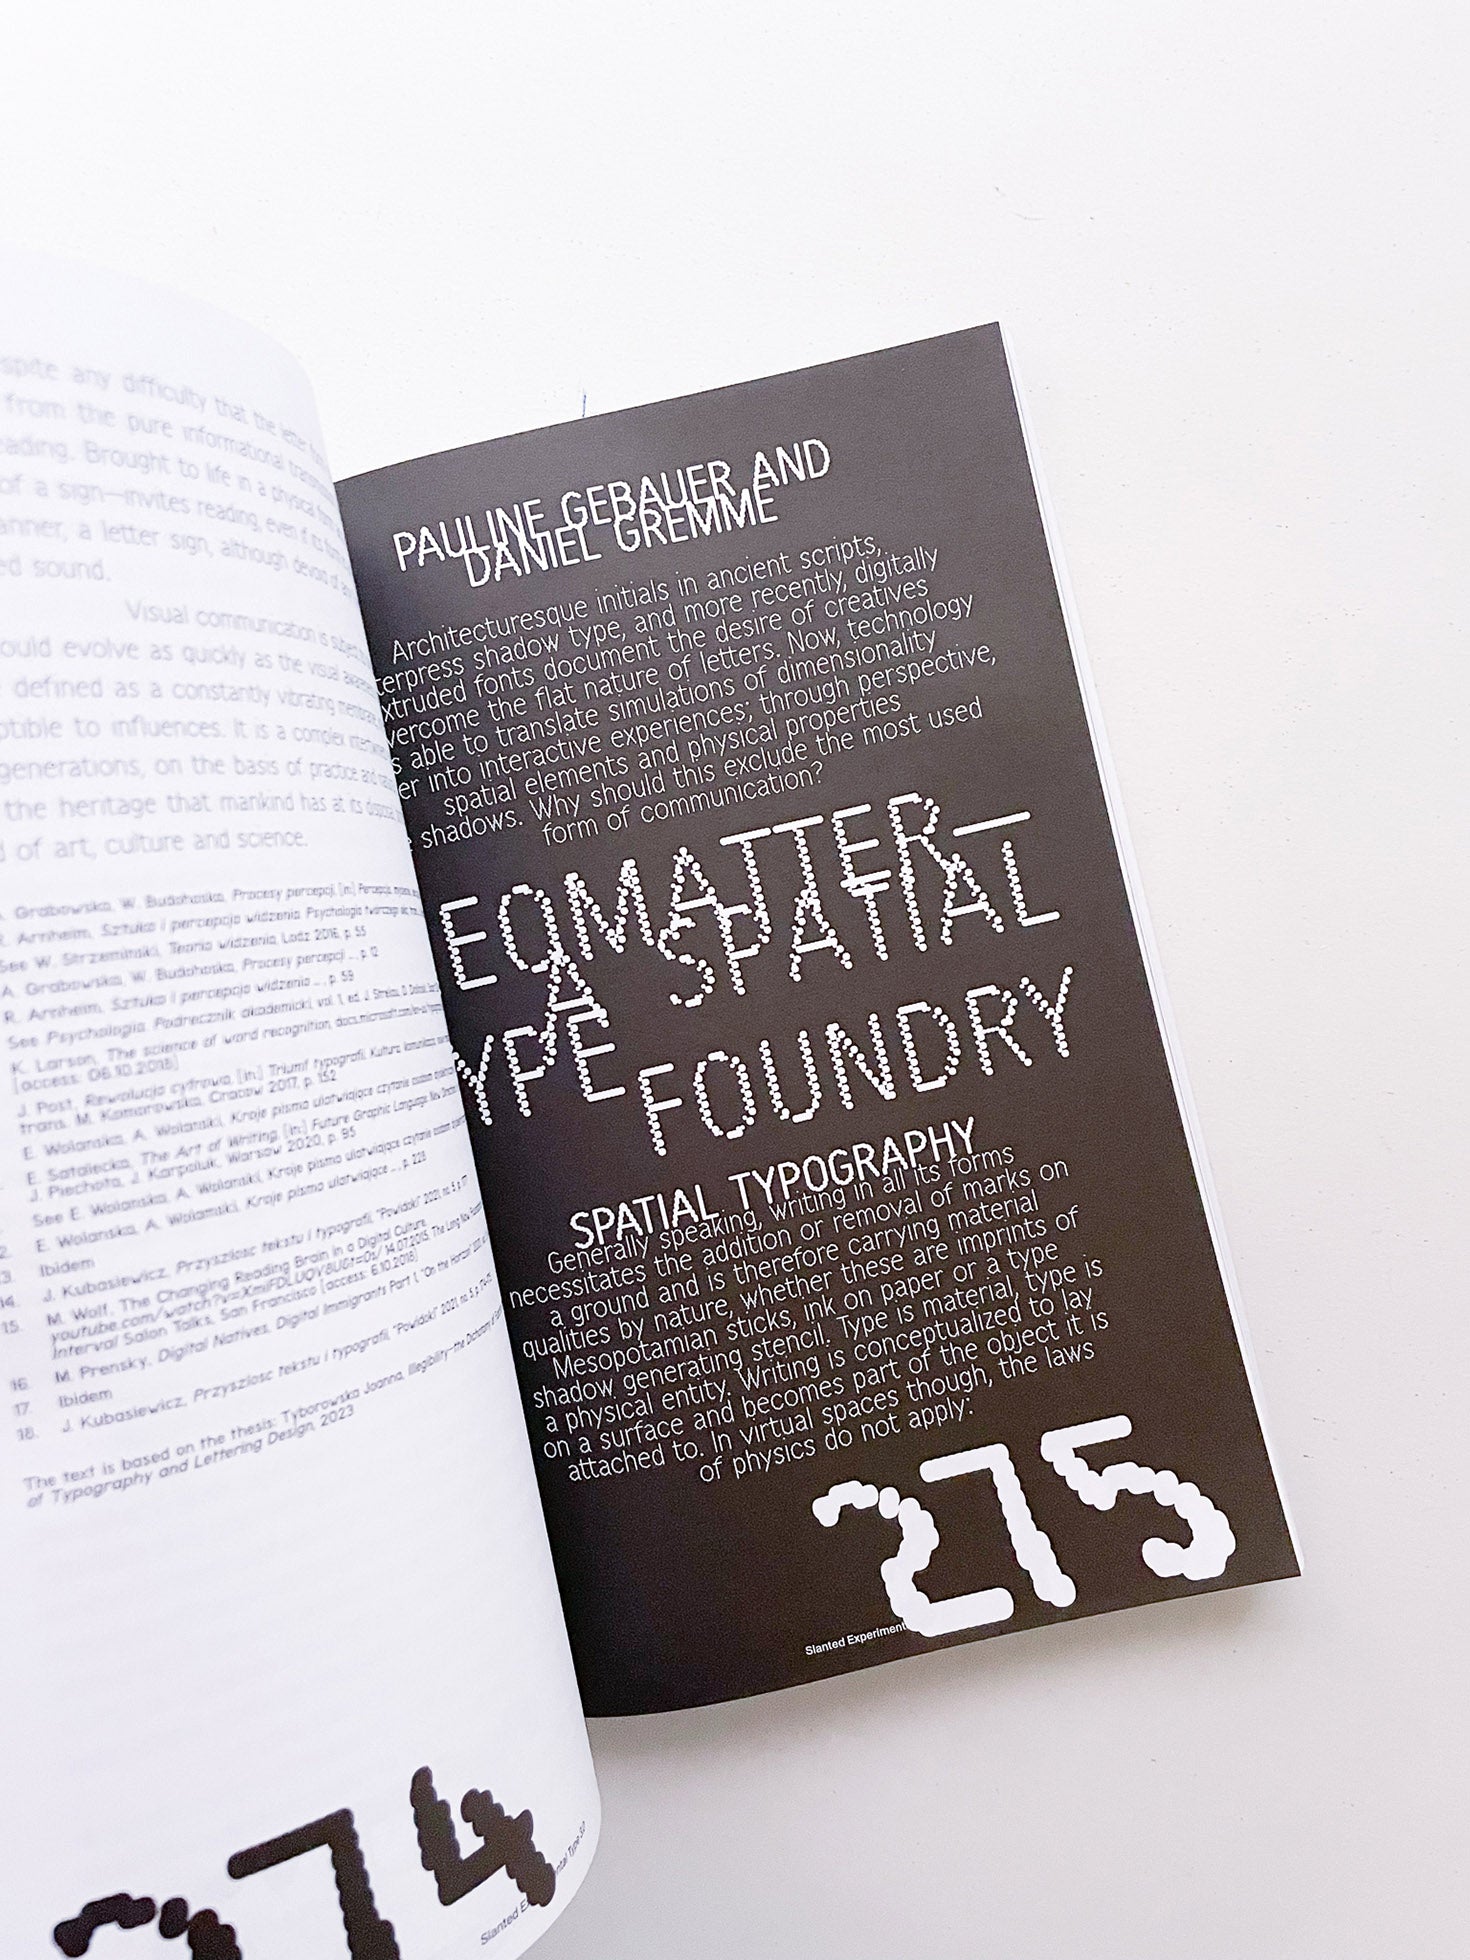 spite any difficulty that the letter
from the pure informational
eading. Brought to life in a physical form,
of a sign—invites reading, even if its
anner, a letter sign, although devoid of
ed sound.
Visual communication is subject
ould evolve as quickly as the visual
defined as a constantly vibrating
ptible to influences. It is a complex
generations, on the basis of practice and
the heritage that mankind has at its disposal
of art, culture and science.
Grabowska, W. Budohoska, Procesy percepcji, [in:]
R. Arnheim, Sztuka i percepcja widzenia. Psychologia
See W. Strzemiński, Teoria widzenia, Lodz 2016, p. 55
A. Grabowska, W. Budohoska, Procesy percepcji ..., p. 12
R. Arnheim, Sztuka i percepcja widzenia ..., p. 59
See Psychologia. Podręcznik akademicki, vol. 1, ed. J. Strelau, D.
K. Larson, The science of word recognition,
[access: 06.10.2018]
J. Post, Rewolucja cyfrowa, [in:] Triumf typografii. Kultura,
trans. M. Komorowska, Cracow 2017, p. 152
E. Wolańska, A. Wolański, Kroje pisma ułatwiające czytanie osobom
E. Satalecka, The Art of Writing, [in:] Future Graphic Language.
J. Piechota, J. Karpoluk, Warsaw 2020, p. 95
See E. Wolańska, A. Wolański, Kroje pisma ułatwiające ..., p. 228
E. Wolańska, A. Wolański, Kroje pisma ułatwiające czytanie osobom
Ibidem
J. Kubasiewicz, Przyszłość tekstu i typografii, "Powidoki" 2021, no. 5, p. 17
14. M. Wolf, The Changing Reading Brain in a Digital Culture,
15. Interval Salon Talks, San Francisco [access: 6.10.2018]
M. Prensky, Digital Natives, Digital Immigrants Part 1, "On the Horizon"
16. J. Kubasiewicz, Przyszłość tekstu i typografii, "Powidoki" 2021, no. 5, p.
17. Ibidem
18. J. Kubasiewicz, Przyszłość tekstu i typografii, "Powidoki" 2021, no. 5, p.
The text is based on the thesis: Tyborowska Joanna, Illegibility—the
of Typography and Lettering Design, 2023
274
Slanted
PAULINE GEBAUER AND
DANIEL GREMME
Architecturesque initials in ancient scripts,
terpress shadow type, and more recently, digitally
xtruded fonts document the desire of creatives
vercome the flat nature of letters. Now, technology
s able to translate simulations of dimensionality
er into interactive experiences; through perspective,
spatial elements and physical properties
shadows. Why should this exclude the most used
form of communication?
EQMATTER—
A SPATIAL
YPE FOUNDRY
SPATIAL TYPOGRAPHY
Generally speaking, writing in all its forms
necessitates the addition or removal of marks on
a ground and is therefore carrying material
qualities by nature, whether these are imprints of
Mesopotamian sticks, ink on paper or a type
shadow generating stencil. Type is material, type is
a physical entity. Writing is conceptualized to lay
on a surface and becomes part of the object it is
attached to. In virtual spaces though, the laws
of physics do not apply:
275
Slanted Experiment